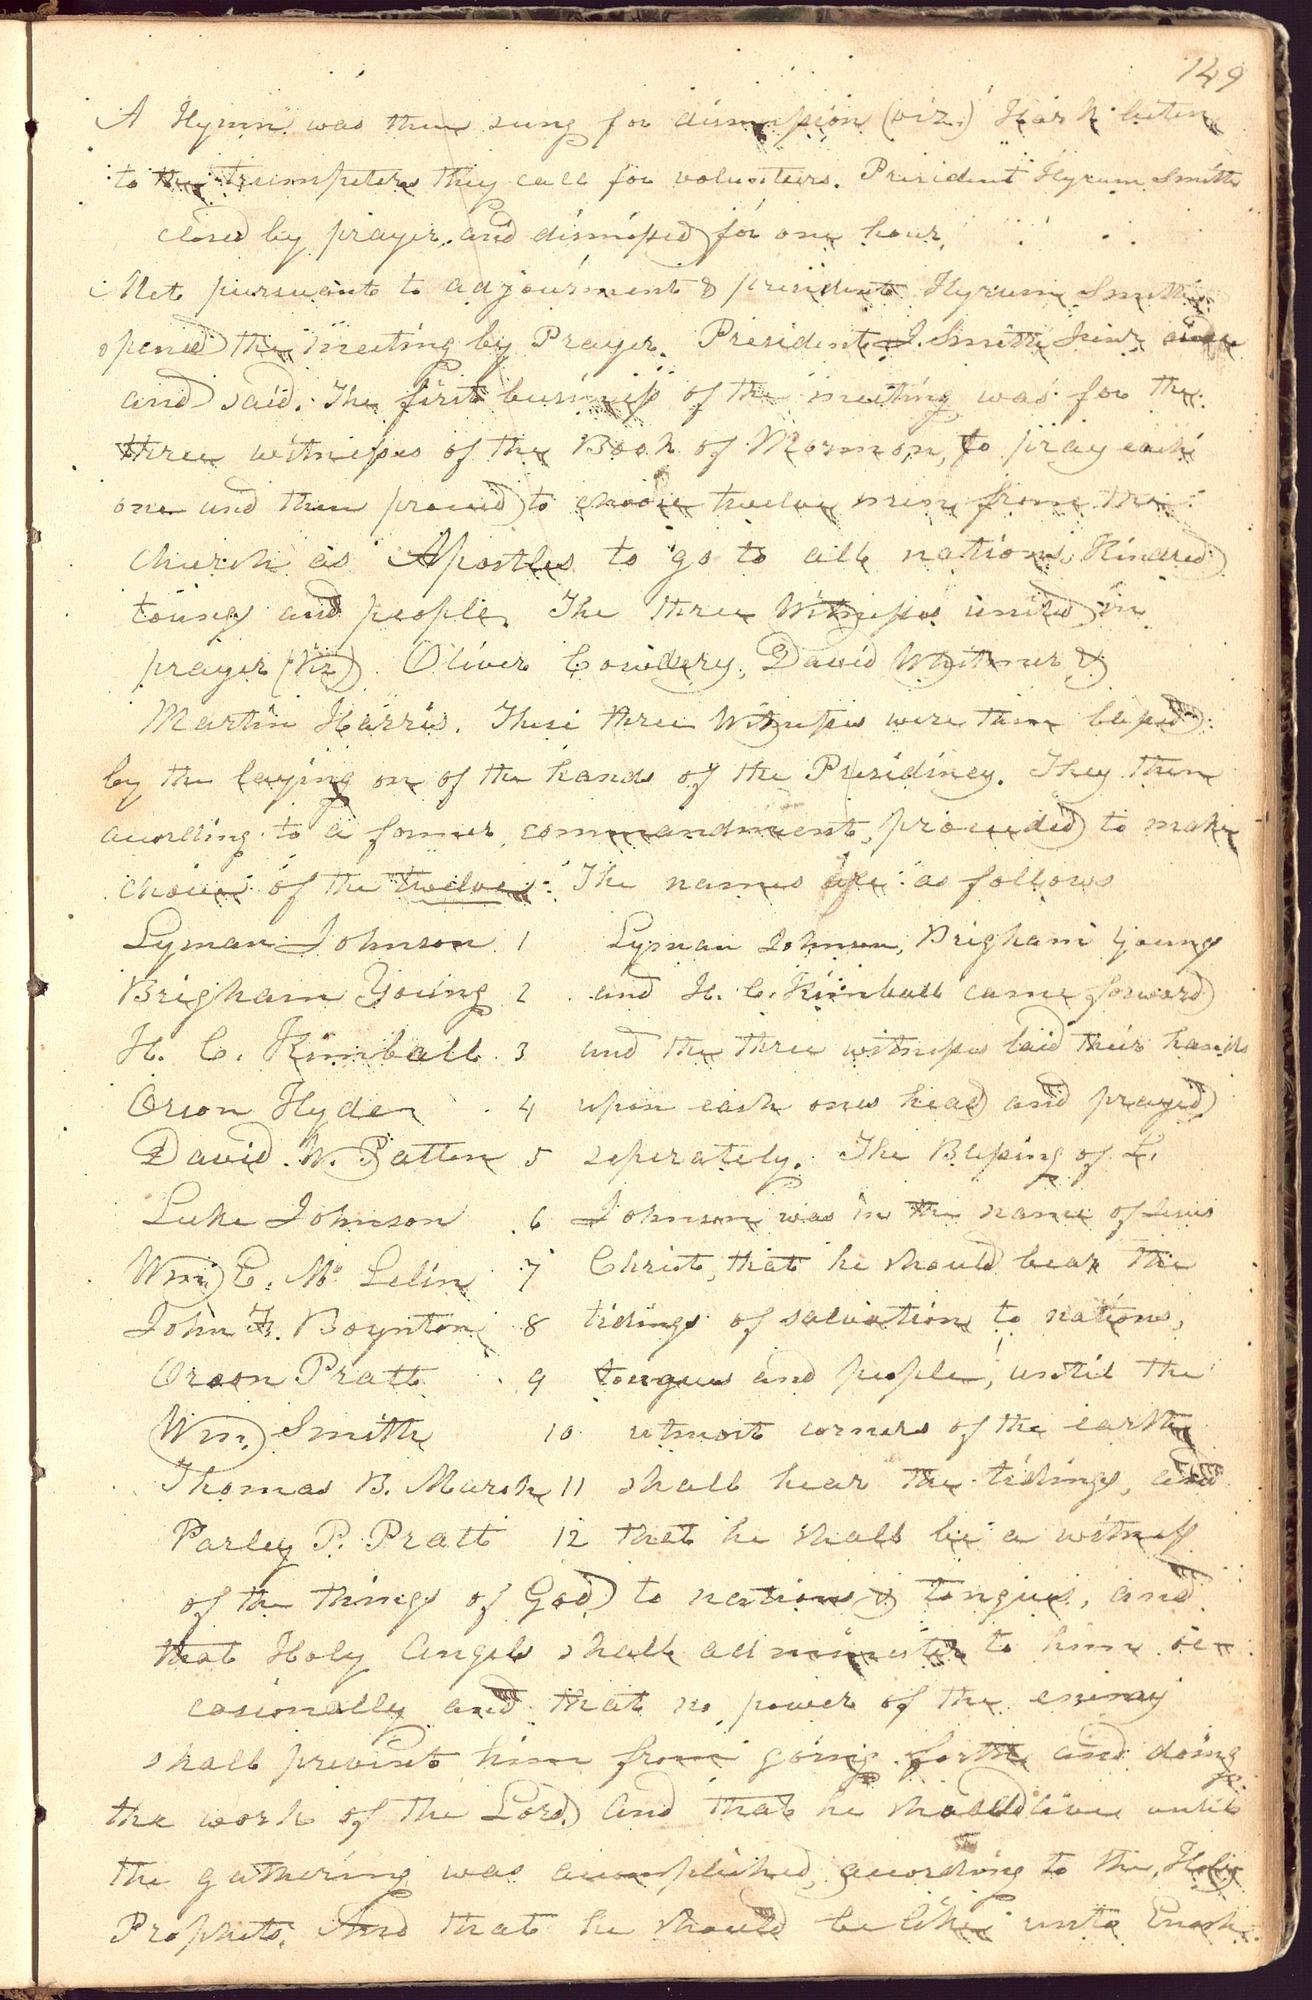 149
A Hymn was then sung for dismission (viz.) Hark listen
to the trumpeters they call for volunteers. President Hyrum Smith
closed by prayer and dismissed for one hour.
Met pursuant to adjournment & president Hyrum Smith
opened the meeting by Prayer. President J. Smith Junr.
and said. The first business of the meeting was for the
three witnesses of the Book of Mormon, to pray each
one and then proceed to choose twelve men from the
church as Apostles to go to all nations, Kindred
toungs and people. The three Witnesses united in
prayer (Viz) Oliver Cowdery, David Whitmer &
Martin Harris. These three Witnesses were then blessed
by the laying on of the hands of the Presidincy. They then
acording to a former commandment, proceeded to make
choice of the twelve. The names are as follows
Lyman Johnson 1 Lyman Johnson, Brigham Young
Brigham Young 2 and H. C. Kimball came forward
H. C. Kimball 3 and the three witnesses laid their hands
Orson Hyde 4 upon each ones head and prayed
David. W. Patten 5 seperately. The Blessing of L.
Luke Johnson 6 Johnson was in the name of Jesus
Wm E. Mc Lelin 7 Christ, that he should bear the
John F. Boynton 8 tidings of salvation to nations,
Orson Pratt 9 tongues and people, until the
Wm. Smith 10 utmost corners of the earth
Thomas B. Marsh 11 shall hear the tidings, and
Parley P. Pratt 12 that he shall be a witness
of the things of God to nations & tongues, and
that Holy Angels shall administer to him oc-
casionally and that no power of the enemy
shall prevent him from going forth and doing
the work of the Lord. And that he should live until
the gathering was accomplished, according to the Holy
Prophets. And that he should be like unto Enoch.